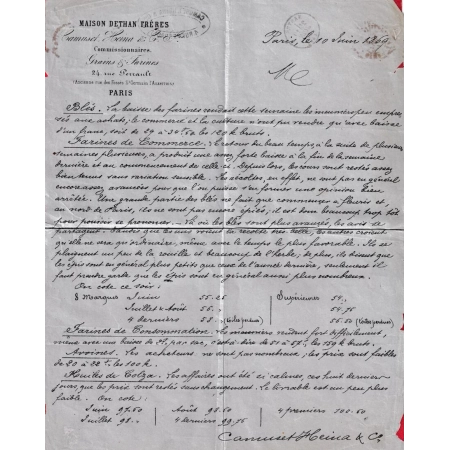 MAISON DETHAN FRÈRES
Camuset, Heina & Cie
Commissionnaires
Grains & Farines
24, rue Perrault
PARIS
Paris, le 10 Juin 1869
M
Blés. La baisse des farines rendant cette semaine les meuniers peu empres-
sés aux achats, le commerce et la culture n'ont pu vendre qu'avec baisse
d'un franc, soit de 29 à 30.50 les 120 k bruts.
Farines de Commerce. Le retour du beau temps, à la suite de plusieurs
semaines pluvieuses, a produit une assez forte baisse à la fin de la semaine
dernière et au commencement de celle-ci. Depuis lors, les cours sont restés assez
bien tenus sans variation sensible. Les récoltes, en effet, ne sont pas en général
encore assez avancées pour que l'on puisse s'en former une opinion bien
arrêtée. Une grande partie des blés ne fait que commencer à fleurir et,
au nord de Paris, ils ne sont pas encore épiés, il est donc beaucoup trop tôt
pour pouvoir se prononcer. Là où les blés sont plus avancés, les avis se
partagent. Tandis que les uns voient la récolte très belle, les autres croient
qu'elle ne sera qu'ordinaire, même avec le temps le plus favorable. Ils se
plaignent un peu de la rouille et beaucoup de l'herbe, de plus, ils disent que
les épis sont en général plus petits que ceux de l'année dernière, seulement il
faut prendre garde que les épis sont en général aussi plus nombreux.
On cote ce soir:
8 Marques Juin 55.25 Supérieures
Juillet & Août 56. 54.75
4 derniers 58. 55.50
Farines de Consommation. Les meuniers vendent fort difficilement,
même avec une baisse de par sac, c'est à dire de les 159 k bruts.
Avoines. Les acheteurs ne sont pas nombreux; les prix sont faibles
de 20 à 22 les 100 k.
Huiles de Colza. Les affaires ont été si calmes, ces huit derniers
jours que les prix sont restés sans changement. Le livrable est un peu plus
faible. On cote:
Juin 97.50 Août 98.50 4 premiers 100.50
Juillet 98. 4 derniers 99.75
Camuset Heina & Cie